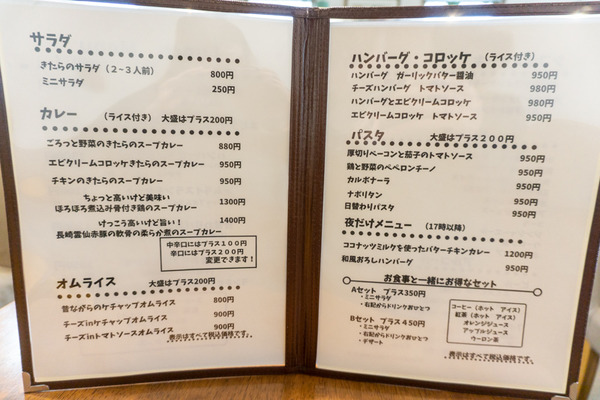 サラダ
きたらのサラダ（2~3人前） 800円
ミニサラダ 250円
カレー （ライス付き） 大盛はプラス200円
ごろっと野菜のきたらのスープカレー 880円
エビクリームコロッケきたらのスープカレー 950円
チキンのきたらのスープカレー 950円
ちょっと高いけど美味い
ほろほろ煮込み骨付き鶏のスープカレー 1300円
けっこう高いけど旨い！ 1400円
長崎雲仙赤豚の軟骨の柔らか煮のスープカレー
中辛口にはプラス100円
辛口にはプラス200円
変更できます！
オムライス 大盛はプラス200円
昔ながらのケチャップオムライス 800円
チーズinケチャップオムライス 900円
チーズinトマトソースオムライス 900円
表示はすべて税込価格です。
ハンバーグ・コロッケ （ライス付き）
ハンバーグ ガーリックバター醤油 950円
チーズハンバーグ トマトソース 980円
ハンバーグとエビクリームコロッケ 980円
エビクリームコロッケ トマトソース 950円
パスタ 大盛はプラス200円
厚切りベーコンと茄子のトマトソース 950円
鶏と野菜のペペロンチーノ 950円
カルボナーラ 950円
ナポリタン 950円
日替わりパスタ 950円
夜だけメニュー （17時以降）
ココナッツミルクを使ったバターチキンカレー 1200円
和風おろしハンバーグ 950円
お食事と一緒にお得なセット
Aセット プラス350円
・ミニサラダ
・右記からドリンクおひとつ
Bセット プラス450円
・ミニサラダ
・右記からドリンクおひとつ
・デザート
コーヒー（ホット アイス）
紅茶（ホット アイス）
オレンジジュース
アップルジュース
ウーロン茶
表示はすべて税込価格です。